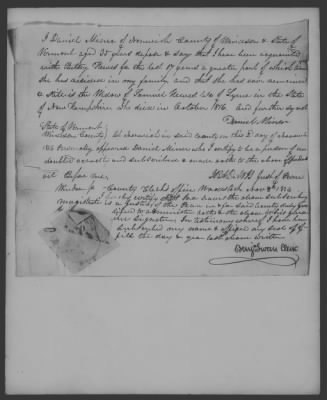 I Daniel Miner of Norwich County of Windsor & State of
Vermont aged 35 years depose & say that I have been acquainted
with Bethiny Hewes for the last 17 years a greater part of which time
she has resided in my family and that she has ever remained
& still is the Widow of Samuel Hewes late of Lyme in the State
of New Hampshire who died in October 1816. and further say not
Daniel Miner
State of Vermont
Windsor County At Norwich in said County on this day of
personally appeared Daniel Miner who I certify to be a person of un
doubted veracity and subscribed & made oath to the above affidavit
Before me
Just of Peace
Windsor County Clerks office Woodstock Nov
I hereby certify that the above subscribing
magistrate is a Justice of the Peace in & for said County duly qua
lified to administer oaths & the above is his
Signature. In testimony whereof I have
subscribed my name & affixed my seal of of
fice the day & year last above written
Benj Swan Clerk